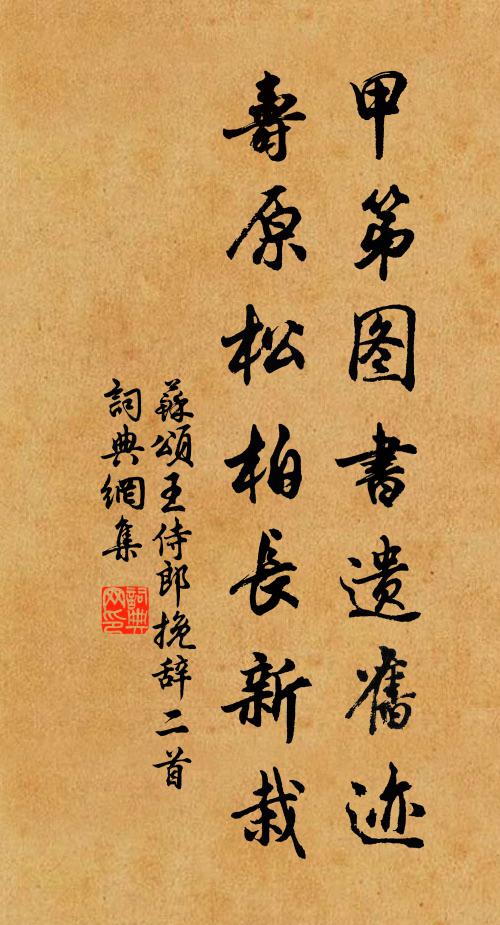 甲第图書遺舊迹
壽原松柏長新栽
蘇頌王侍郎挽辞二首
詞典網集
詞典网印